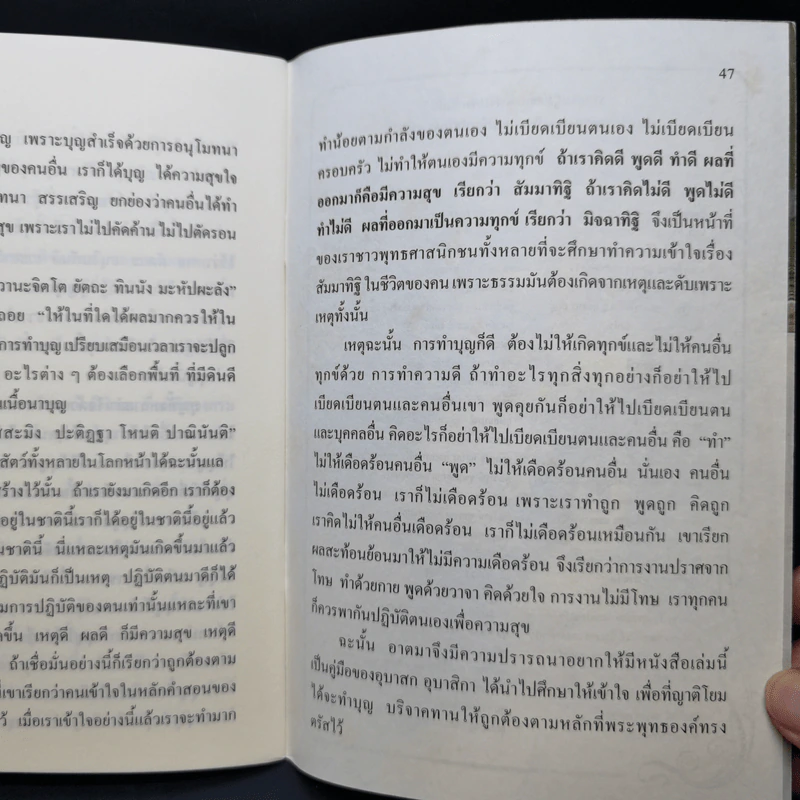 ญ เพราะบุญสำเร็จด้วยการอนุโมทนา
ของคนอื่น เราก็ได้บุญ ได้ความสุขใจ
ทนา สรรเสริญ ยกย่องว่าคนอื่นได้ทำ
ุข เพราะเราไม่ไปคัดค้าน ไม่ไปตัดรอน
วานะจิตโต ยัตถะ ทินนัง มะหัปผะลัง”
ถอย “ให้ในที่ใดได้ผลมากควรให้ใน
การทำบุญ เปรียบเสมือนเวลาเราจะปลูก
อะไรต่าง ๆ ต้องเลือกพื้นที่ ที่มีดินดี
เนื้อนาบุญ
สสะมิง ปะติฏฐา โหนติ ปาณินันติ”
สัตว์ทั้งหลายในโลกหน้าได้ฉะนั้นแล
ร้างไว้นั้น ถ้าเรายังมาเกิดอีก เราก็ต้อง
อยู่ในชาตินี้เราก็ได้อยู่ในชาตินี้อยู่แล้ว
นชาตินี้ นี่แหละเหตุมันเกิดขึ้นมาแล้ว
ฏิบัติมันก็เป็นเหตุ ปฏิบัติตนมาดีก็ได้
มการปฏิบัติของตนเท่านั้นแหละที่เขา
ดขึ้น เหตุดี ผลดี ก็มีความสุข เหตุดี
ถ้าเชื่อมั่นอย่างนี้ก็เรียกว่าถูกต้องตาม
ที่เขาเรียกว่าคนเข้าใจในหลักคำสอนของ
ว้ เมื่อเราเข้าใจอย่างนี้แล้วเราจะทำมาก
47
ทำน้อยตามกำลังของตนเอง ไม่เบียดเบียนตนเอง ไม่เบียดเบียน
ครอบครัว ไม่ทำให้ตนเองมีความทุกข์ ถ้าเราคิดดี พูดดี ทำดี ผลที่
ออกมาก็คือมีความสุข เรียกว่า สัมมาทิฐิ ถ้าเราคิดไม่ดี พูดไม่ดี
ทำไม่ดี ผลที่ออกมาเป็นความทุกข์ เรียกว่า มิจฉาทิฐิ จึงเป็นหน้าที่
ของเราชาวพุทธศาสนิกชนทั้งหลายที่จะศึกษาทำความเข้าใจเรื่อง
สัมมาทิฐิ ในชีวิตของคน เพราะธรรมมันต้องเกิดจากเหตุและดับเพราะ
เหตุทั้งนั้น
เหตุฉะนั้น การทำบุญก็ดี ต้องไม่ให้เกิดทุกข์และไม่ให้คนอื่น
ทุกข์ด้วย การทำความดี ถ้าทำอะไรทุกสิ่งทุกอย่างก็อย่าให้ไป
เบียดเบียนตนและคนอื่นเขา พูดคุยกันก็อย่าให้ไปเบียดเบียนตน
และบุคคลอื่น คิดอะไรก็อย่าให้ไปเบียดเบียนตนและคนอื่น คือ “ทำ”
ไม่ให้เดือดร้อนคนอื่น “พูด” ไม่ให้เดือดร้อนคนอื่น นั่นเอง คนอื่น
ไม่เดือดร้อน เราก็ไม่เดือดร้อน เพราะเราทำถูก พูดถูก คิดถูก
เราคิดไม่ให้คนอื่นเดือดร้อน เราก็ไม่เดือดร้อนเหมือนกัน เขาเรียก
ผลสะท้อนย้อนมาให้ไม่มีความเดือดร้อน จึงเรียกว่าการงานปราศจาก
โทษ ทำด้วยกาย พูดด้วยวาจา คิดด้วยใจ การงานไม่มีโทษ เราทุกคน
ก็ควรพากันปฏิบัติตนเองเพื่อความสุข
ฉะนั้น อาตมาจึงมีความปรารถนาอยากให้มีหนังสือเล่มนี้
เป็นคู่มือของอุบาสก อุบาสิกา ได้นำไปศึกษาให้เข้าใจ เพื่อที่ญาติโยม
ได้จะทำบุญ บริจาคทานให้ถูกต้องตามหลักที่พระพุทธองค์ทรง
ตรัสไว้